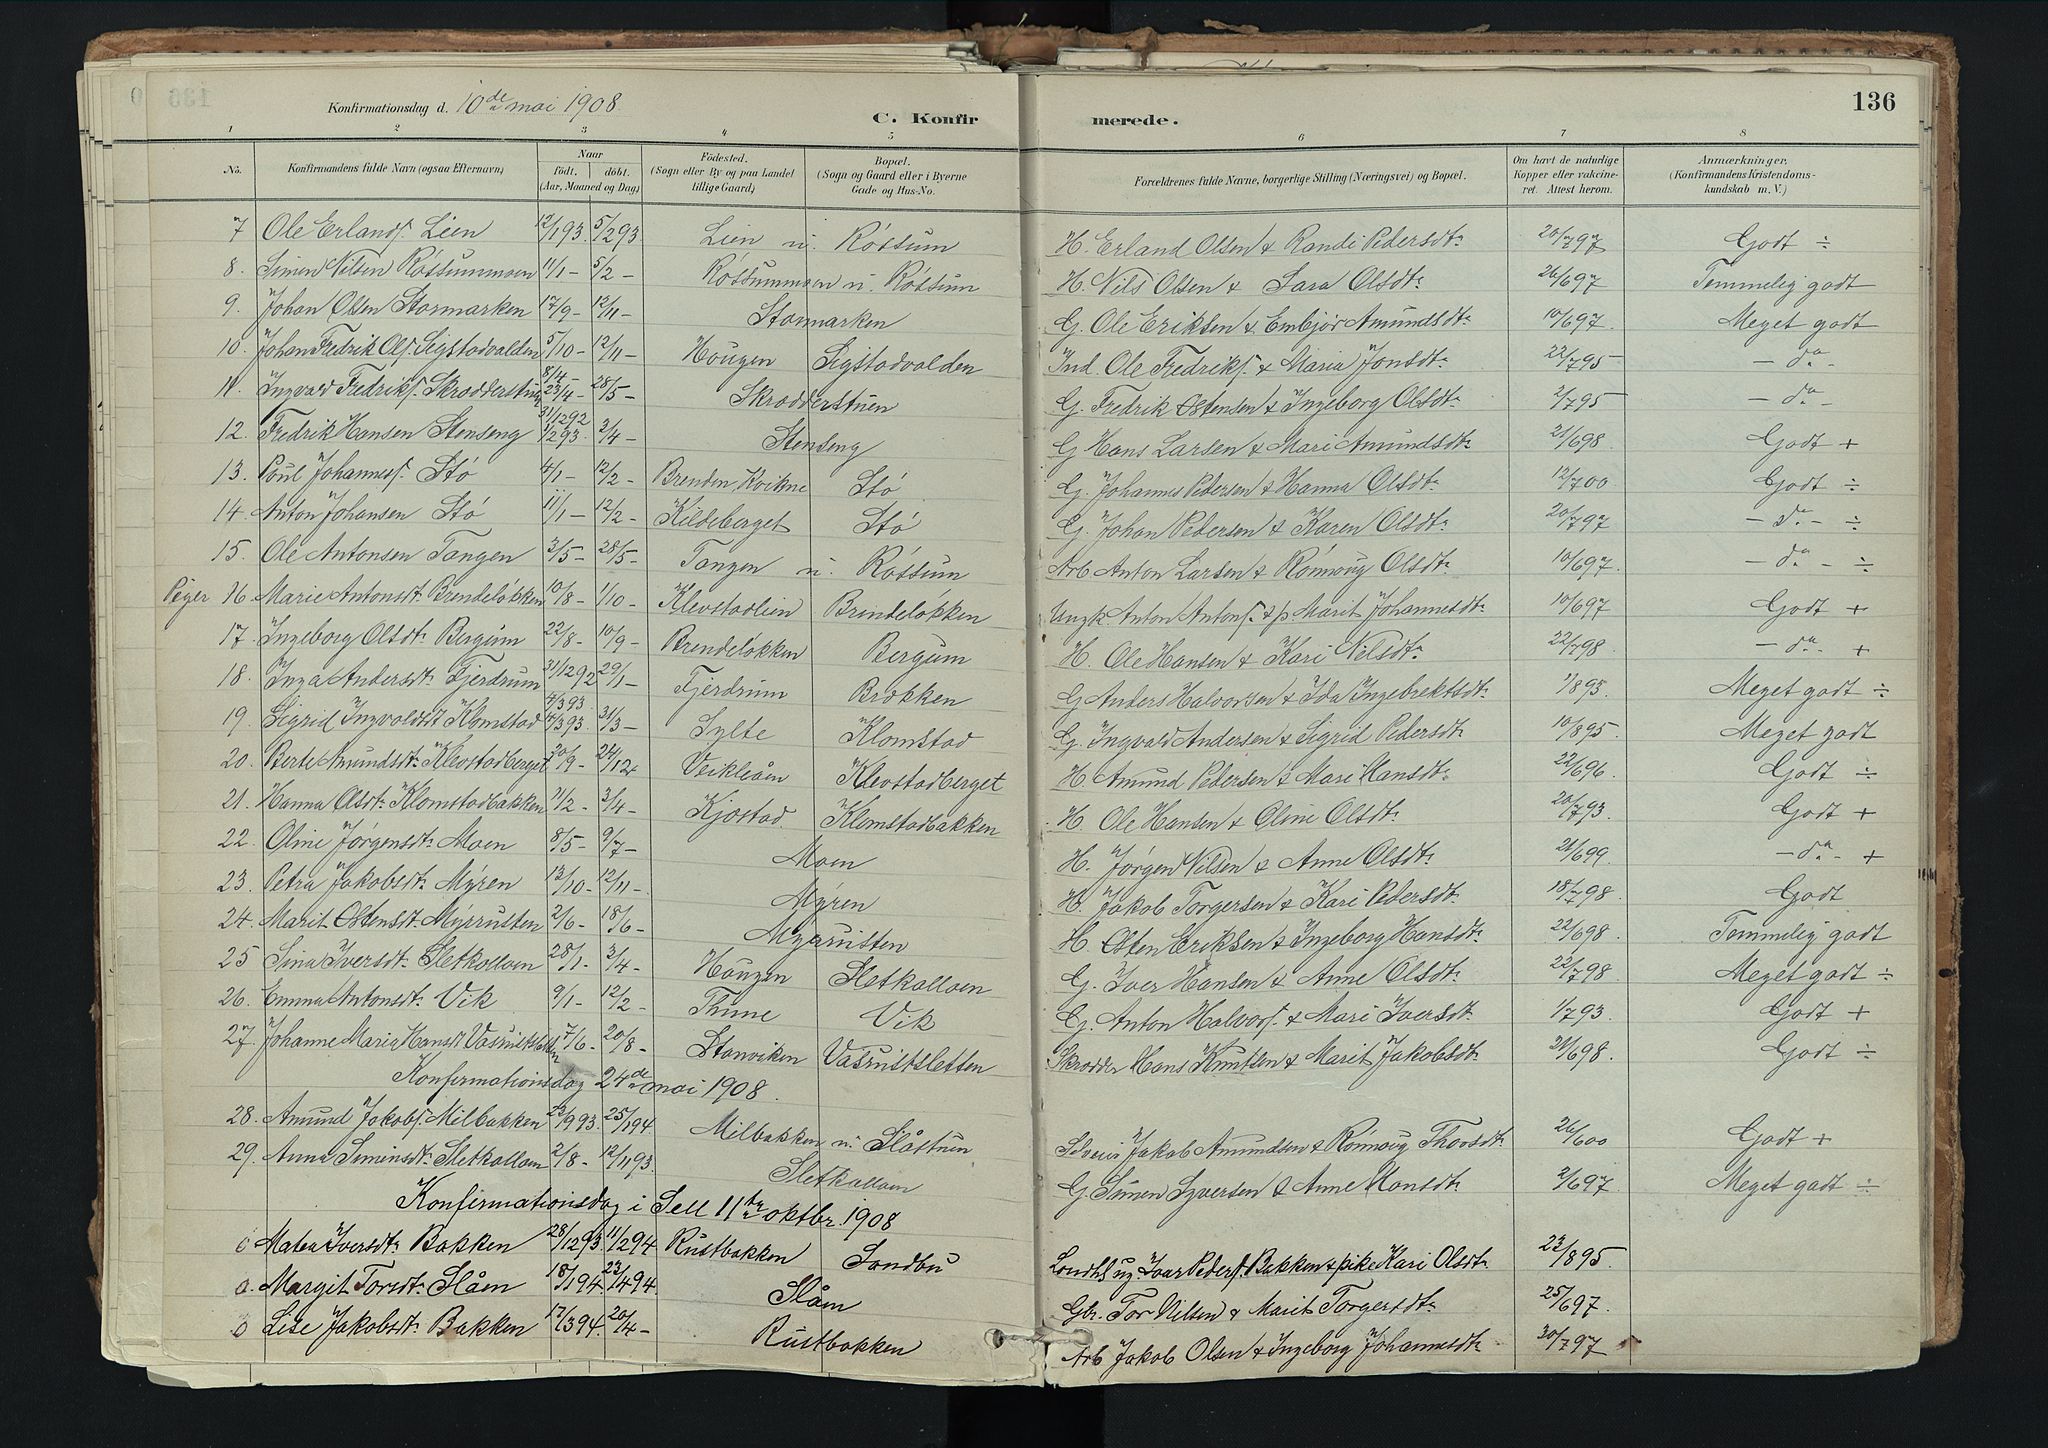 136
Konfirmationsdag d. 10de mai 1908.
C. Konfirmerede.
1 2 3 4 5 6 7 8
No. Konfirmandens fulde Navn (ogsaa Efternavn) Naar født. døbt. (Aar, Maaned og Dag) Fødested. (Sogn eller By og paa Landet tillige Gaard) Bopæl. (Sogn og Gaard eller i Byerne Gade og Hus-No. Forældrenes fulde Navne, borgerlige Stilling (Næringsvei) og Bopæl. Om havt de naturlige Kopper eller vakcineret. Attest herom. Anmærkninger. (Konfirmandens Kristendomskundskab m. V.)
7 Ole Erlands. Lien 12/1 93. 5/2 93 Lien u. Røssum H. Erland Olsen & Randi Pedersdtr 20/7 97 Godt ÷
8. Simen Nilsen Røssummoen 11/1 - 5/2 - Røssummoen u. Røssum H. Nils Olsen & Sara Olsdtr 26/6 97 Temmelig godt
9. Johan Olsen Stormarken 17/9 - 12/11 - Stormarken G. Ole Eriksen & Embjør Amundsdtr 10/6 97. Meget godt
10. Johan Fredrik Ols. Sigstadvolden 5/10 - 12/11 - Hougen Sigstadvolden Ind. Ole Fredriks. & Maria Jonsdtr 22/7 95 - do -
11. Ingvald Fredriks. Skrædderstuen 8/4 23/4 - 28/5 - Skrædderstuen G. Fredrik Østensen & Ingeborg Olsdtr 2/7 95 - do -
12. Fredrik Hansen Stenseng 31/12 92 1/2 93. 3/4 - Stenseng G Hans Larsen & Mari Amundsdtr 21/6 98. Godt +
13. Poul Johanness. Stø 4/1 - 12/2 - Brenden, Kvikne Stø G. Johannes Pedersen & Hanna Olsdtr 12/7 00 Godt ÷
14. Anton Johansen Stø 11/1 - 12/2 - Kildeberget Stø G. Johan Pedersen & Karen Olsdtr 20/7 97 - do - ÷
15. Ole Antonsen Tangen 3/5 - 28/5 - Tangen u. Røssum Arb Anton Larsen & Rønnoug Olsdtr 10/6 97. - do - ÷
Piger 16 Marie Antonsdtr Brendeløkken 10/8 - 1/10 - Klevstadlien Brendeløkken Ungk Anton Antons. & p. Marit Johannesdtr 10/6 97 Godt +
17. Ingeborg Olsdtr Bergum 22/8 - 10/9 - Brendeløkken Bergum H. Ole Hansen & Kari Nilsdtr 22/7 98. - do - +
18. Inga Andersdtr Fjerdrum 31/12 92 29/1 - Fjerdrum Brokken G Anders Halvorsen & Ida Ingebrektsdtr 1/8 95. Meget godt ÷
19. Sigrid Ingvaldsdt Klomstad 4/3 93 4/3 93. 31/3 - Sylte Klomstad G. Ingvald Andersen & Sigrid Pedersdtr 10/8 95. Meget godt
20. Berte Amundsdtr Klevstadberget 20/9 - 24/12 Veikleåen Klevstadberget H. Amund Pedersen & Mari Hansdtr 22/6 96. Godt ÷
21. Hanna Olsdtr Klomstadbakken 11/2 - 3/4 - Kjøstad Klomstadbakken H. Ole Hansen & Oline Olsdtr 20/7 93. Godt +
22. Oline Jørgensdtr Moen 8/5 - 9/7 - Moen H. Jørgen Nilsen & Anne Olsdtr 21/6 99 - do - +
23. Petra Jakobsdtr Myren 13/10 - 12/11 - Myren H. Jakob Torgersen & Kari Pedersdtr 18/7 98. Godt
24. Marit Østensdt Myrrusten 2/6 - 18/6 - Myrrusten H. Østen Eriksen & Ingeborg Hansdtr 22/6 98. Temmelig godt
25 Sina Iversdtr Sletkolloen 28/1 - 3/4 - Hougen Sletkolloen G. Iver Hansen & Anne Olsdtr 22/7 98. Meget godt ÷
26. Emma Antonsdtr Vik 9/1 - 12/2 - Thune Vik G. Anton Halvors. & Mari Iversdtr 1/7 93. Godt +
27. Johanne Marie Hansdt 7/6 - 20/8 - Storviken Skrædder Hans Knutsen & Marit Jakobsdtr 21/6 98. Godt ÷
Konfirmationsdag 24de mai 1908.
28. Amund Jakobs. Milbakken 23/9 93. 25/1 94. Milbakken u. Slåstuen Jakob Amundsen & Rønnoug Thorsdtr 26/6 00 Godt +
29. Anna Simensdtr Sletkolloen 2/8 - 12/11 93. Sletkolloen G. Simen Syversen & Anne Hansdtr 2/6 97. Meget godt ÷
Konfirmationsdag i Sell 11te oktbr. 1908
Matea Iversdtr Bakken 28/12 93. 11/2 94 Rustbakken Sandbu Iver Peders. Bakken & pike Kari Olsdtr 23/8 95.
Margit Torsdtr Slåen 18/1 94. 23/4 94. Slåen Gbr. Tor Nilsen & Marit Torgersdtr 25/6 97.
Lise Jakobsdtr Bakken 17/3 94. 20/4 - Rustbakken Arb Jakob Olsen & Ingeborg Johannesdtr 30/7 97